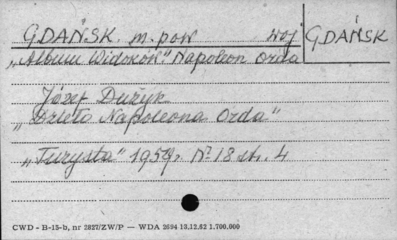 GDAŃSK m. pow woj GDAŃSK
„Album Widoków” Napoleon Orda
Józef Dużyk
„Dzieło Napoleona Orda”
„Turysta” 1959r. Nr 18 str. 4
CWD - B-15-b, nr 2827/ZW/P — WDA 2694 13.12.62 1.700.000